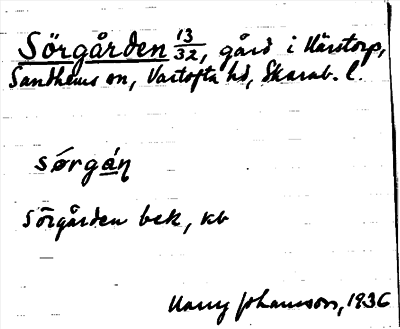 Sörgården 13/32, gård i Härstorp,
Sandhems sn, Vartofta hd, Skarab. l.
sǿrgán
Sörgården bek, kb
Harry Johansson, 1936